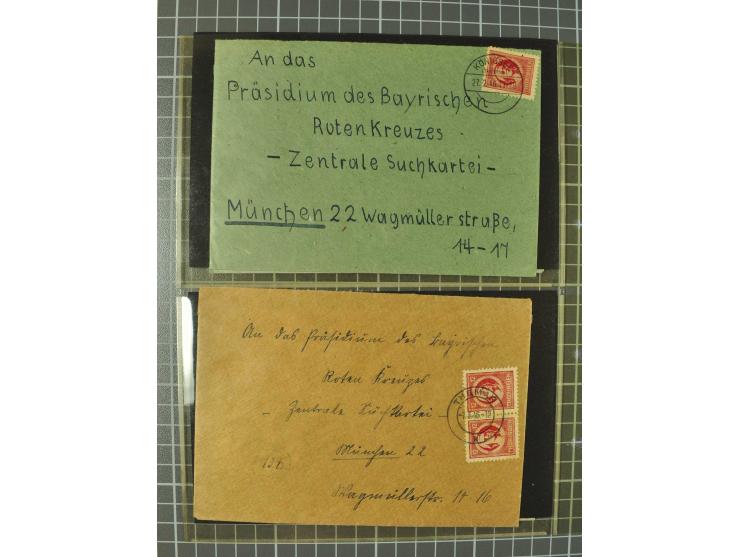 An das
Präsidium des Bayrischen
Roten Kreuzes
- Zentrale Suchkartei -
München 22 Wagmüllerstraße,
14-17
An das Präsidium des Bayrischen
Roten Kreuzes
- Zentrale Suchkartei -
München 22
Wagmüllerstr. 14 16
12
12